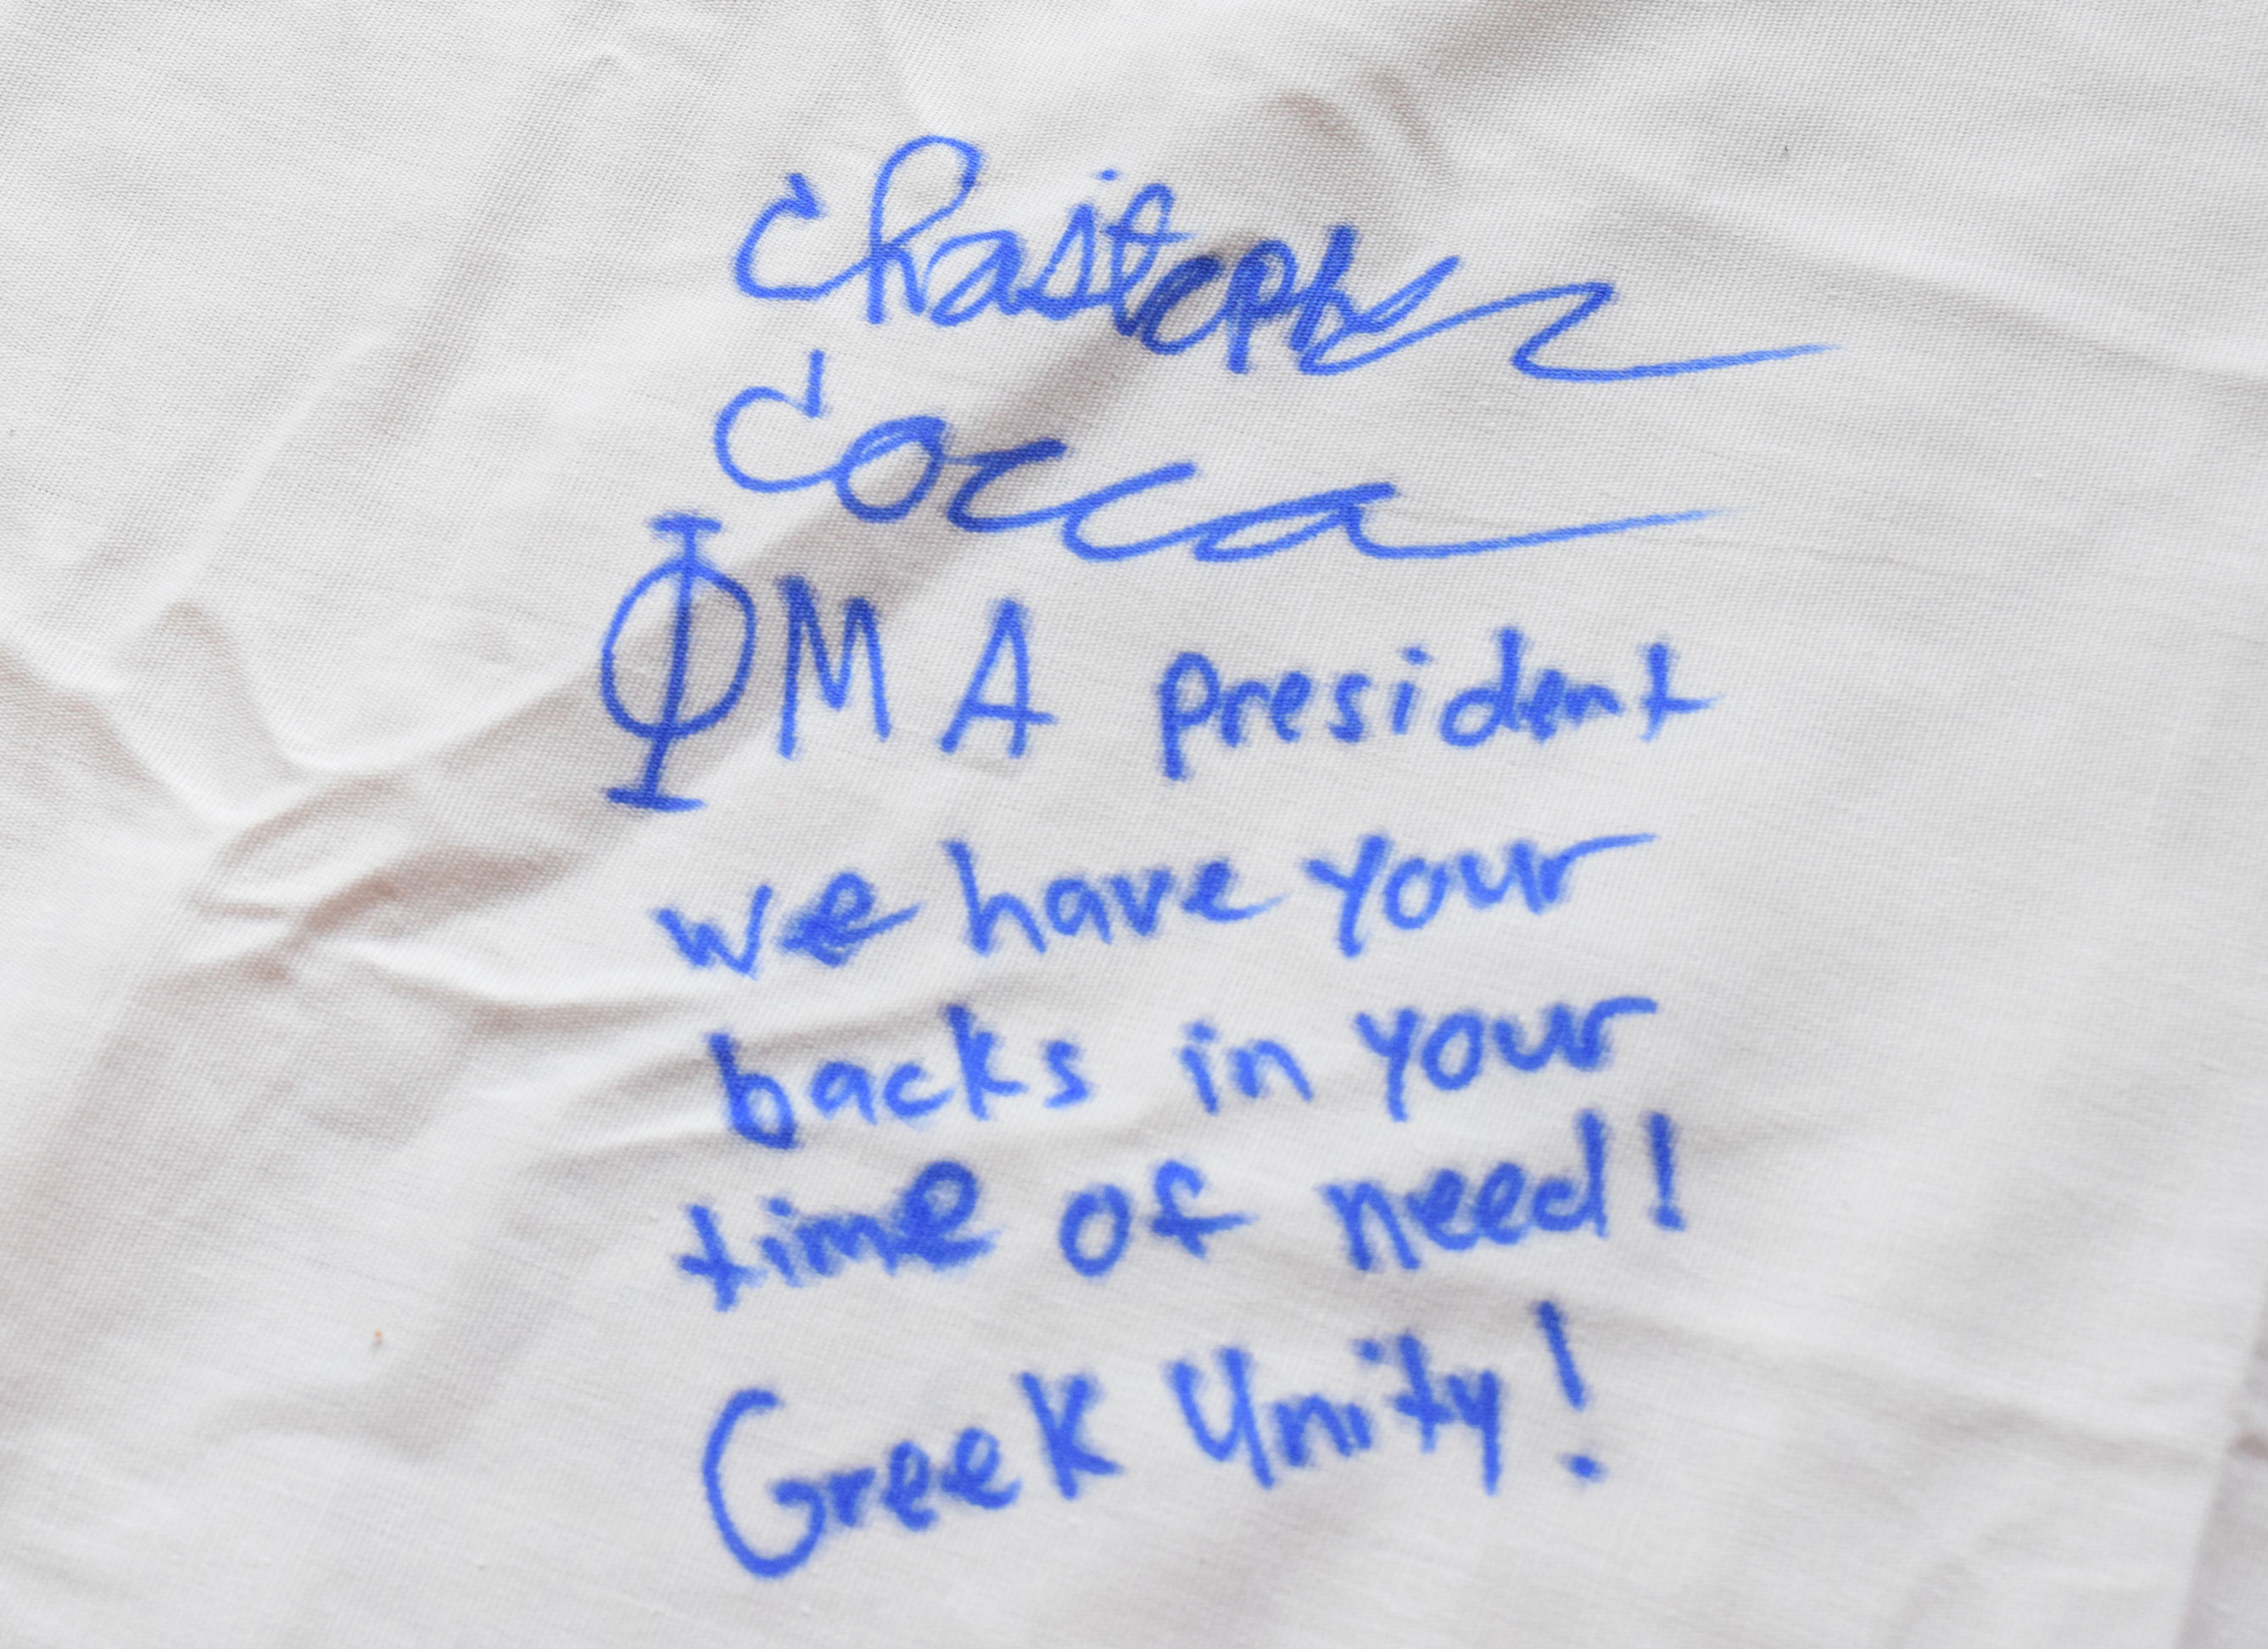 Christopher
Cocca
ΦMA president
we have your
backs in your
time of need!
Greek Unity!